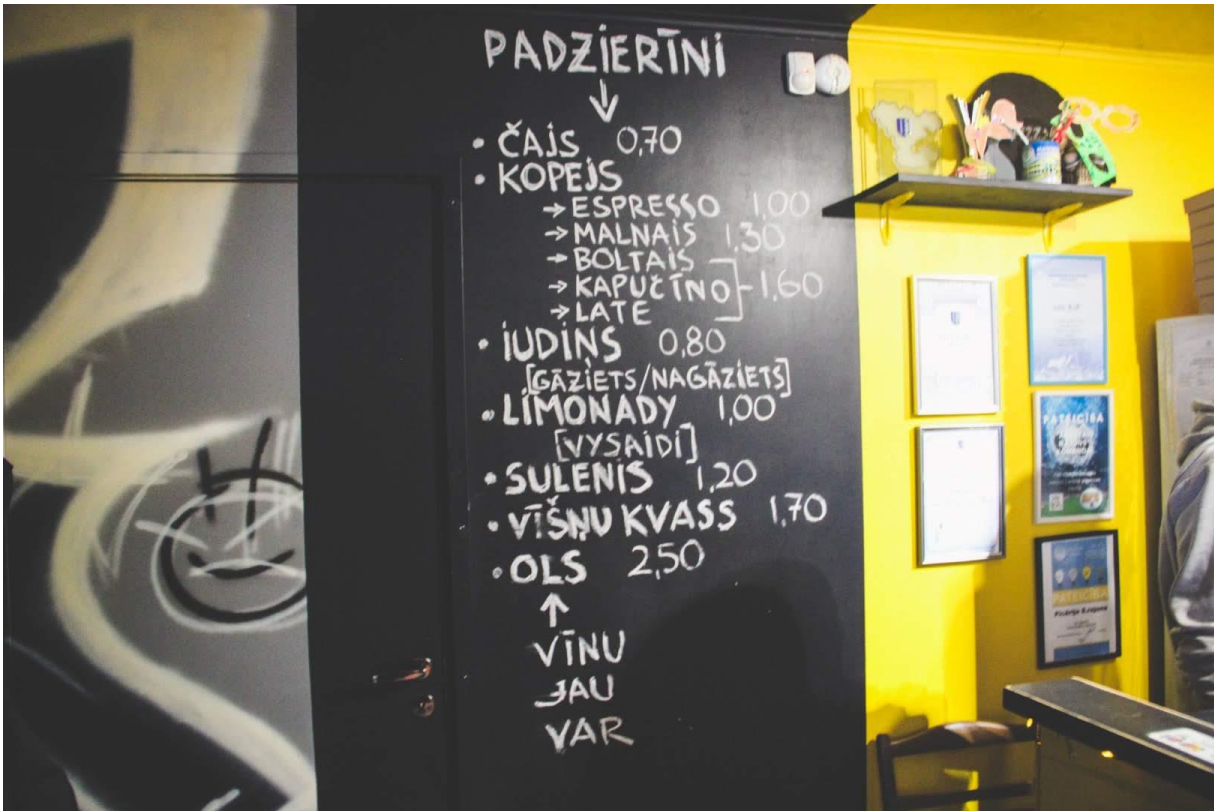 PADZIERĪNI
↓
• ČAJS 0,70
• KOPEJS
→ ESPRESSO 1,00
→ MALNAIS 1,30
→ BOLTAIS
→ KAPUČĪNO - 1,60
→ LATE
• IUDIŅS 0,80
[GĀZIETS/NAGĀZIETS]
• LIMONADY 1,00
[VYSAIDI]
• SULENIS 1,20
• VĪŠŅU KVASS 1,70
• OLS 2,50
↑
VĪNU
JAU
VAR
PATEICĪBA
PATEICĪBA